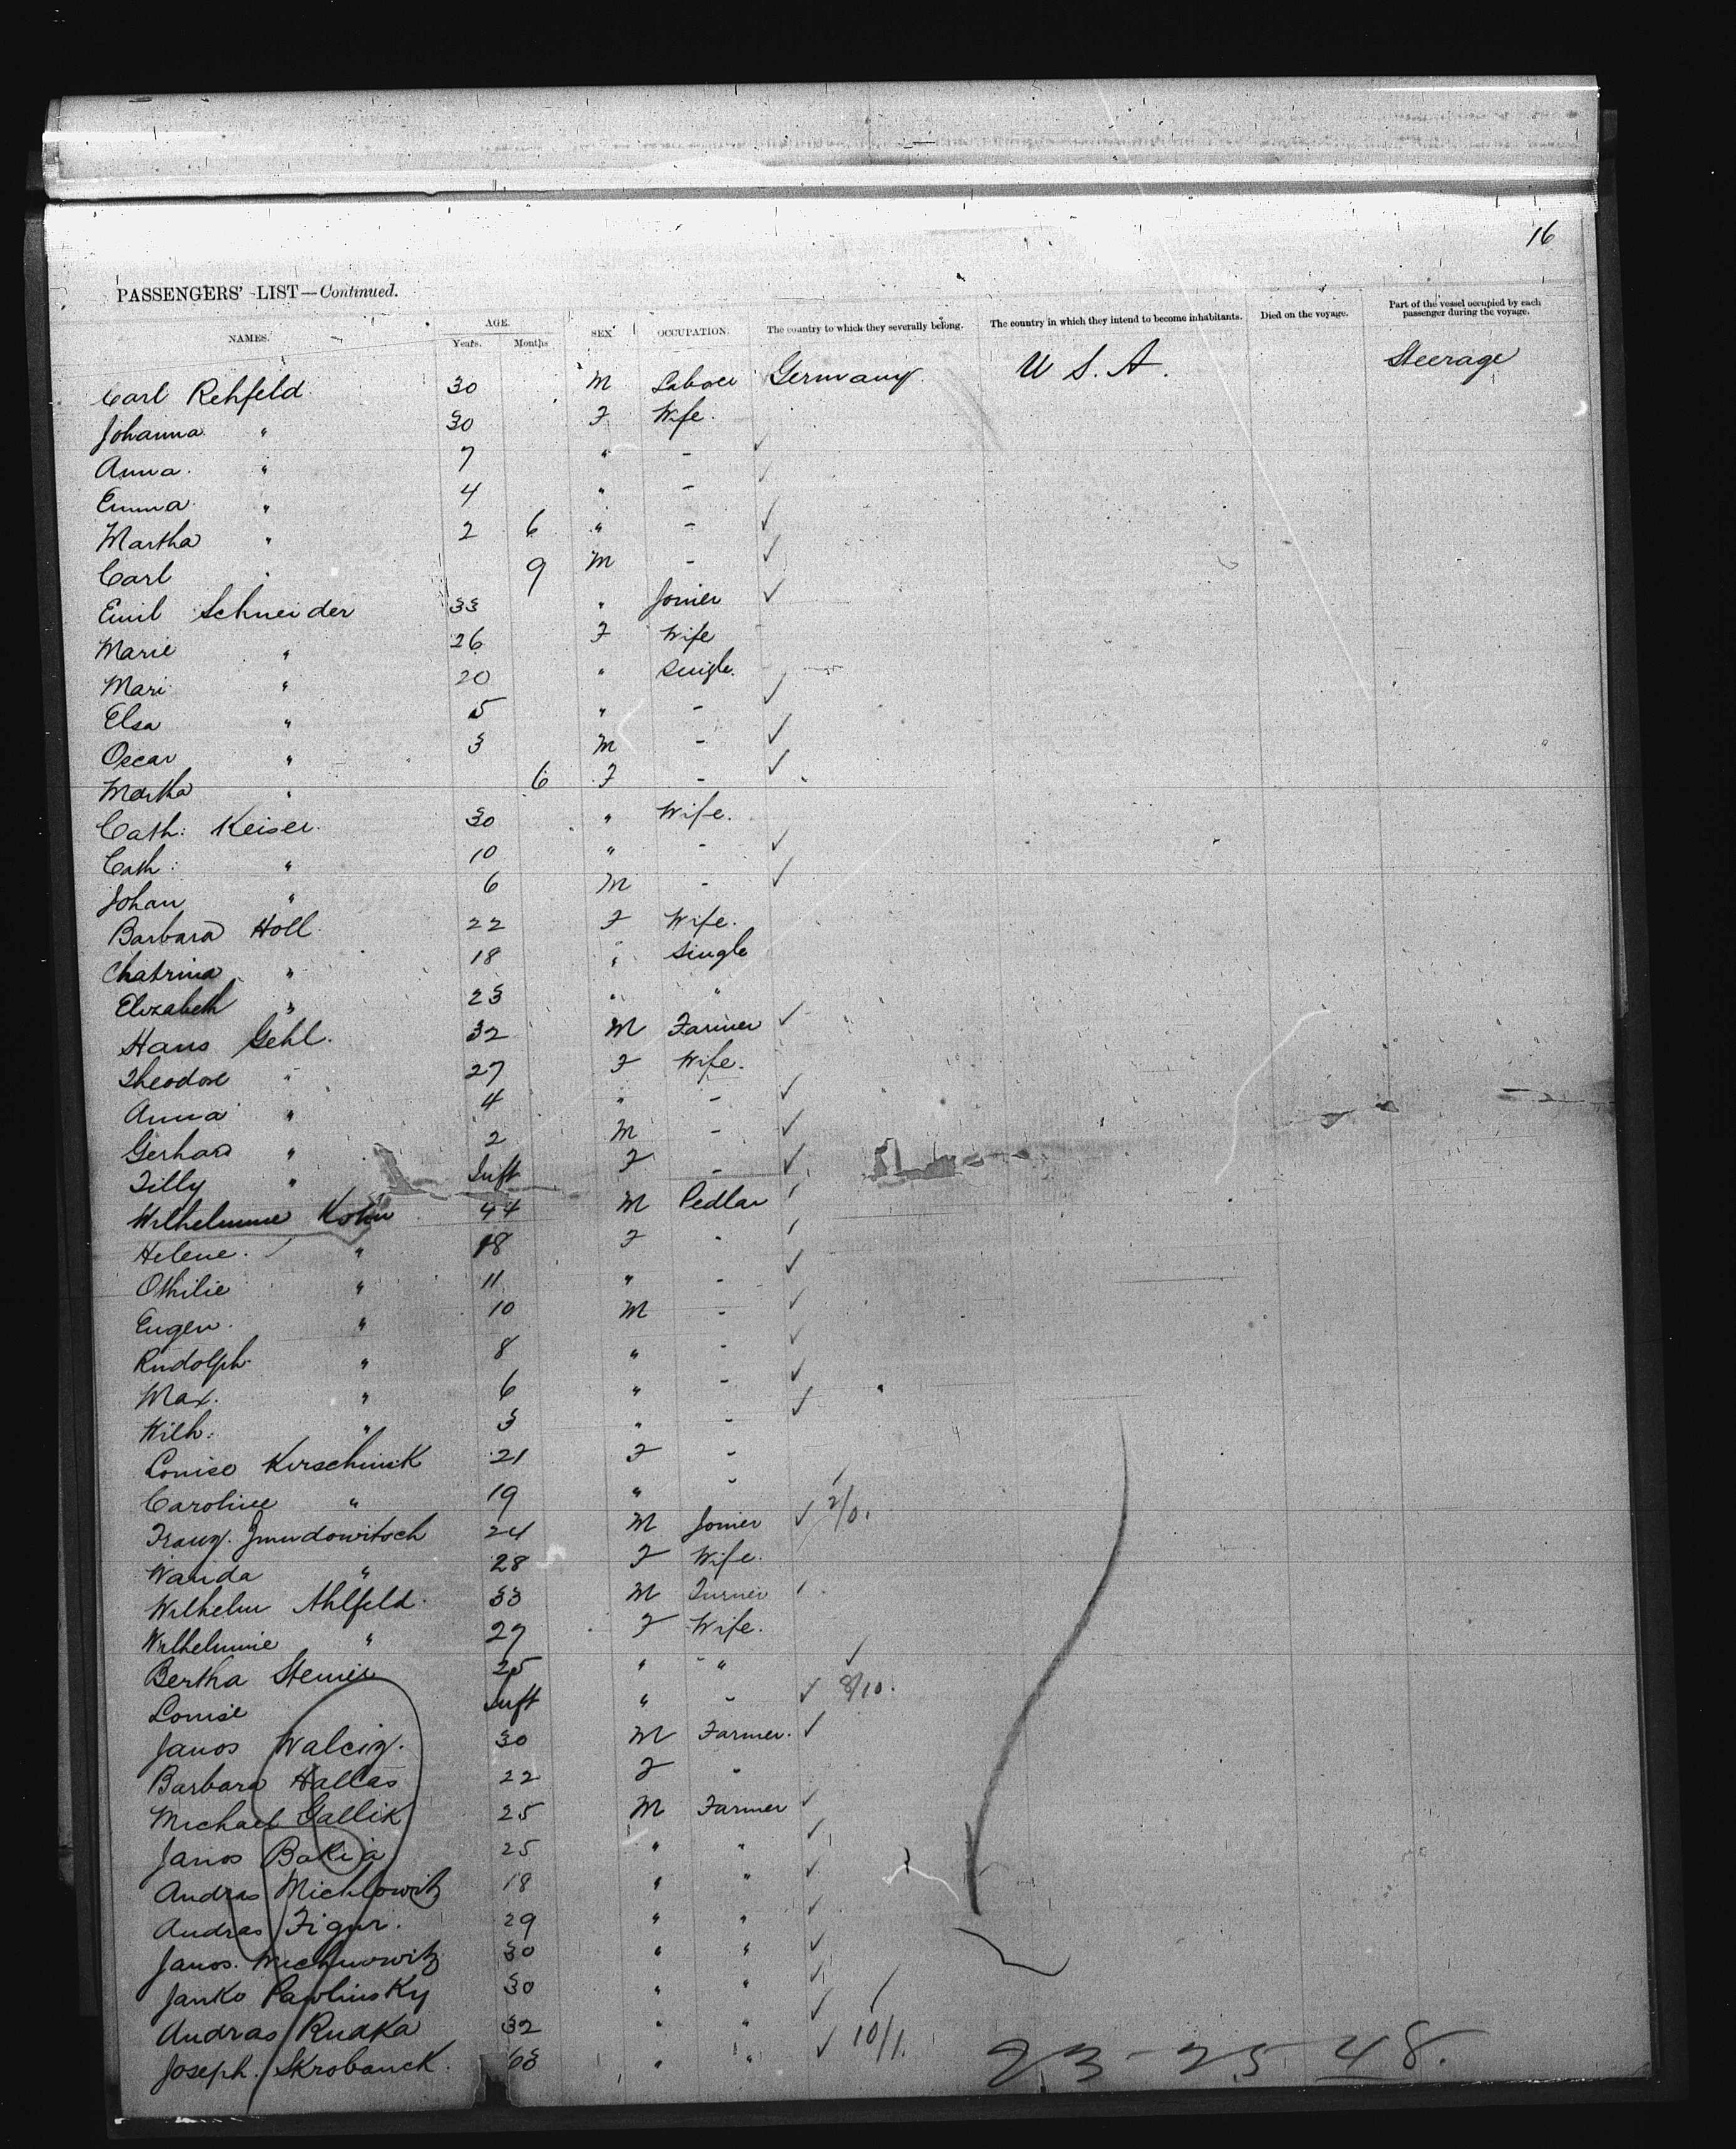 16
PASSENGERS' LIST—Continued.
NAMES. AGE. Years. Months SEX OCCUPATION. The country to which they severally belong. The country in which they intend to become inhabitants. Died on the voyage. Part of the vessel occupied by each passenger during the voyage.
Carl Rehfeld 30 M Labou Germany U S. A. Steerage
Johanna " 30 F Wife.
Anna " 7 " -
Emma " 4 " -
Martha " 2 6 " - ✓
Carl 9 M - ✓
Emil Schneider 33 " Joiner ✓
Marie " 26 F Wife
Mari " 20 " Single.
Elsa " 5 " - ✓
Oscar " 3 M - ✓
Martha " 6 F - ✓
Cath: Keiser 30 " Wife.
Cath: " 10 " - ✓
Johan " 6 M - ✓
Barbara Holl 22 F Wife.
Chatrina " 18 " Single
Elizabeth " 23 " "
Hans Gehl. 32 M Farmer ✓
Theodore " 27 F Wife.
Anna " 4 " - ✓
Gerhard " 2 M - ✓
Tilly " Inft F - ✓
Wilhelmine Kohn 44 M Pedlar
Helene " 18 F -
Othilie " 11 " - ✓
Eugen " 10 M - ✓
Rudolph " 8 " - ✓
Max. " 6 " - ✓
Wilh: " 3 " - ✓
Louise Kirschnick 21 F -
Caroline " 19 " -
Franz. Zmudowitsch 24 M Joiner ✓ 2/0.
Wanda " 28 F Wife.
Wilhelm Ahlfeld 33 M Turner
Wilhelmine " 27 F Wife.
Bertha 25 " " ✓
Louise Inft " - ✓ 8/10.
Janos Walciz. 30 M Farmer. ✓
Barbara Hallas 22 F "
Michael Gallik 25 M Farmer ✓
Janos Bakia 25 " " ✓
Andras Michlowitz 18 " " ✓
Andras Figur. 29 " " ✓
Janos. 30 " " ✓
Janko Pawlinsky 30 " " ✓
Andras Rudka 32 " " ✓
Joseph. Skrobanck 63 " " ✓ 10/1.
23 - 25 48.